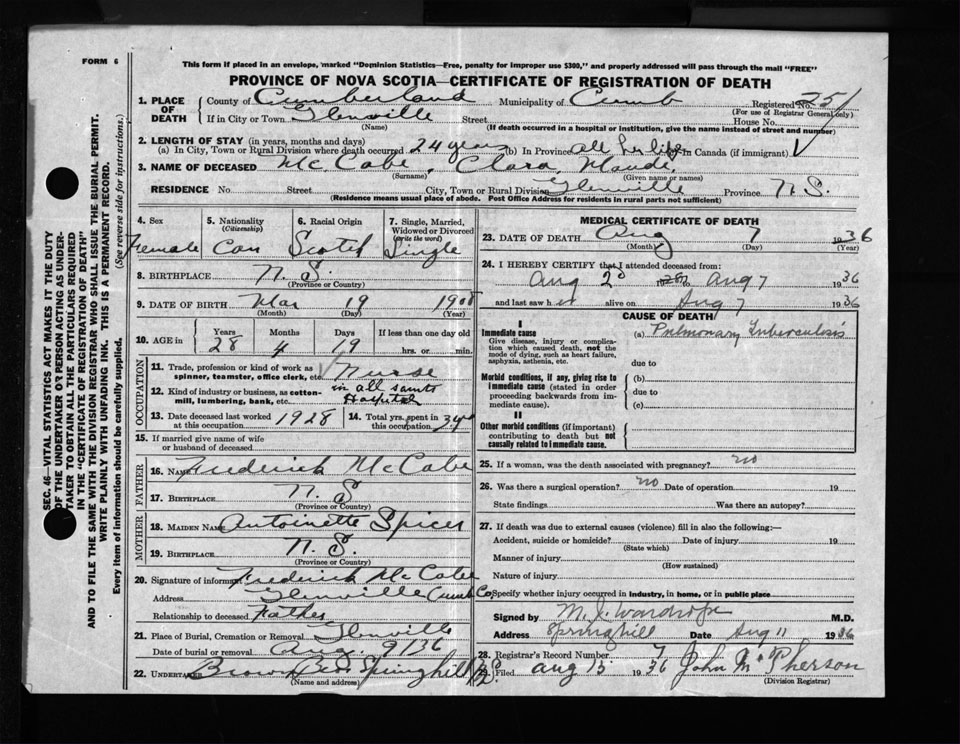 FORM 6
This form if placed in an envelope, marked "Dominion Statistics—Free, penalty for improper use $300," and properly addressed will pass through the mail "FREE"
PROVINCE OF NOVA SCOTIA—CERTIFICATE OF REGISTRATION OF DEATH
SEC. 46—VITAL STATISTICS ACT MAKES IT THE DUTY
OF THE UNDERTAKER OR PERSON ACTING AS UNDER-
TAKER TO OBTAIN ALL THE PARTICULARS REQUIRED
IN THE "CERTIFICATE OF REGISTRATION OF DEATH"
AND TO FILE THE SAME WITH THE DIVISION REGISTRAR WHO SHALL ISSUE THE BURIAL PERMIT.
WRITE PLAINLY WITH UNFADING INK. THIS IS A PERMANENT RECORD.
Every item of information should be carefully supplied. (See reverse side for instructions.)
1. PLACE OF DEATH County of Cumberland Municipality of Cumb Registered No. 251
(For use of Registrar General only)
If in City or Town Glenville Street House No.
(Name) (If death occurred in a hospital or institution, give the name instead of street and number)
2. LENGTH OF STAY (in years, months and days)
(a) In City, Town or Rural Division where death occurred 24 years (b) In Province all her life (c) In Canada (if immigrant)
3. NAME OF DECEASED McCabe, Clara Maude
(Surname) (Given name or names)
RESIDENCE No. Street City, Town or Rural Division Glenville Province N.S.
(Residence means usual place of abode. Post Office Address for residents in rural parts not sufficient)
4. Sex 5. Nationality (Citizenship) 6. Racial Origin 7. Single, Married, Widowed or Divorced (Write the word)
Female Can Scotch Single
8. BIRTHPLACE N.S.
(Province or Country)
9. DATE OF BIRTH Mar 19 1908
(Month) (Day) (Year)
10. AGE in Years Months Days If less than one day old
28 4 19 hrs. or min.
OCCUPATION
11. Trade, profession or kind of work as spinner, teamster, office clerk, etc. Nurse
12. Kind of industry or business, as cotton-mill, lumbering, bank, etc. in all saints Hospital
13. Date deceased last worked at this occupation 1928 14. Total yrs. spent in this occupation 3 yrs
15. If married give name of wife or husband of deceased
FATHER
16. Name Frederick McCabe
17. Birthplace N.S
MOTHER
18. Maiden Name Antoinette Spicer
19. Birthplace N.S.
(Province or Country)
20. Signature of informant Frederick McCabe
Address Glenville Cumb Co.
Relationship to deceased Father
21. Place of Burial, Cremation or Removal Glenville
Date of burial or removal Aug. 9/36
22. Undertaker Brown Bros Springhill N.S.
(Name and address)
MEDICAL CERTIFICATE OF DEATH
23. DATE OF DEATH Aug 7 1936
(Month) (Day) (Year)
24. I HEREBY CERTIFY that I attended deceased from:
Aug 2d to Aug 7 1936
and last saw her alive on Aug 7 1936
CAUSE OF DEATH
I
Immediate cause (a) Pulmonary Tuberculosis
Give disease, injury or complication which caused death, not the mode of dying, such as heart failure, asphyxia, asthenia, etc.
due to
Morbid conditions, if any, giving rise to immediate cause (stated in order proceeding backwards from immediate cause). (b)
due to
(c)
II
Other morbid conditions (if important) contributing to death but not causally related to immediate cause.
25. If a woman, was the death associated with pregnancy? no
26. Was there a surgical operation? no Date of operation 19
State findings Was there an autopsy?
27. If death was due to external causes (violence) fill in also the following:—
Accident, suicide or homicide? Date of injury 19
(State which)
Manner of injury
(How sustained)
Nature of injury
Specify whether injury occurred in industry, in home, or in public place
Signed by M. J. Wardrope M.D.
Address Springhill Date Aug 11 1936
28. Registrar's Record Number 7
Filed Aug 15 1936 John McPherson
(Division Registrar)